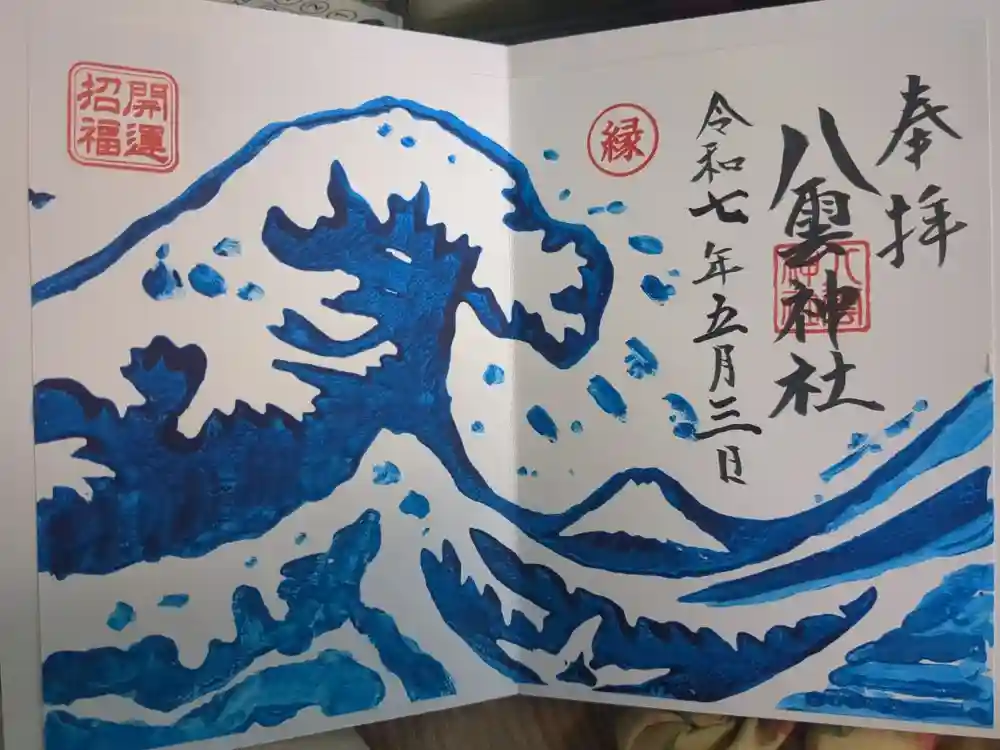 奉拝
八雲神社
八雲神社
令和七年五月三日
縁
開運
招福